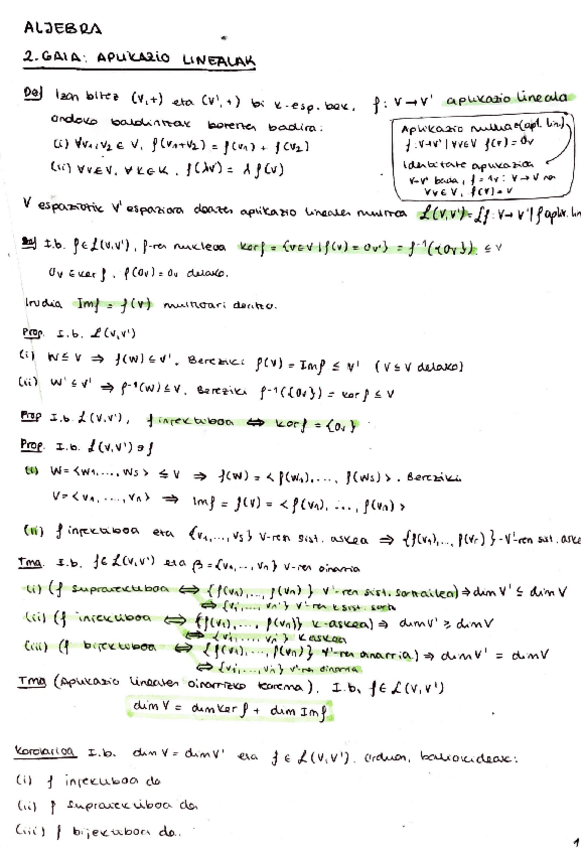 ALJEBRA
2. GAIA: APLIKAZIO LINEALAK
Def Izan bitez (V,+) eta (V',+) bi K-esp. bek. f: V→V' aplikazio lineala
ondoko baldintzak betetzen badira:
(i) ∀v₁,v₂ ∈ V, f(v₁+v₂) = f(v₁) + f(v₂)
(ii) ∀v∈V, ∀λ∈K, f(λv) = λ f(v)
Aplikazio nulua (apl. lin)
f: V→V' | ∀v∈V f(v) = 0v
Identitate aplikazioa
V=V' bada, f = 1v: V→V non
∀v∈V, f(v) = v
V espaziotik V' espaziora doazen aplikazio linealen multzoa L(V,V') = {f: V→V' | f aplik. lin
Def I.b. f∈L(V,V'), f-ren nukleoa kerf = {v∈V | f(v) = 0v'} = f⁻¹({0v}) ≤ V
0v ∈ kerf, f(0v) = 0v delako.
Irudia Imf = f(V) multzoari deritzo.
Prop. I.b. L(V,V')
(i) W≤V ⇒ f(W) ≤ V'. Bereziki f(V) = Imf ≤ V' (V≤V delako)
(ii) W'≤V' ⇒ f⁻¹(W) ≤ V. Bereziki f⁻¹({0v}) = kerf ≤ V
Prop I.b. L(V,V'), f injektiboa ⇔ kerf = {0v}
Prop. I.b. L(V,V') ∋ f
(i) W = <w₁, ..., ws> ≤ V ⇒ f(W) = <f(w₁), ..., f(ws)>. Bereziki
V = <v₁, ..., vn> ⇒ Imf = f(V) = <f(v₁), ..., f(vn)>
(ii) f injektiboa eta {v₁, ..., vs} V-ren sist. askea ⇒ {f(v₁), ..., f(vr)} - V'-ren sist. aske
Tma. I.b. f∈L(V,V') eta β = {v₁, ..., vn} V-ren oinarria
(i) (f suprajektiboa ⇔ {f(v₁), ..., f(vn)} V'-ren sist. sortzailea) ⇒ dim V' ≤ dim V
⇔ {v₁', ..., vn'} V'-ren K sist. sortz
(ii) (f injektiboa ⇔ {f(v₁), ..., f(vn)} K-askea) ⇒ dim V' ≥ dim V
⇔ {v₁', ..., vn'} K askea
(iii) (f bijektiboa ⇔ {f(v₁), ..., f(vn)} V'-ren oinarria) ⇒ dim V' = dim V
⇔ {v₁', ..., vn'} V'-ren oinarria
Tma (Aplikazio linealen oinarrizko teorema). I.b. f∈L(V,V')
dim V = dim Ker f + dim Imf
Korolarioa I.b. dim V = dim V' eta f ∈ L(V,V'). Orduan, baliokideak:
(i) f injektiboa da
(ii) f suprajektiboa da
(iii) f bijektiboa da.
1